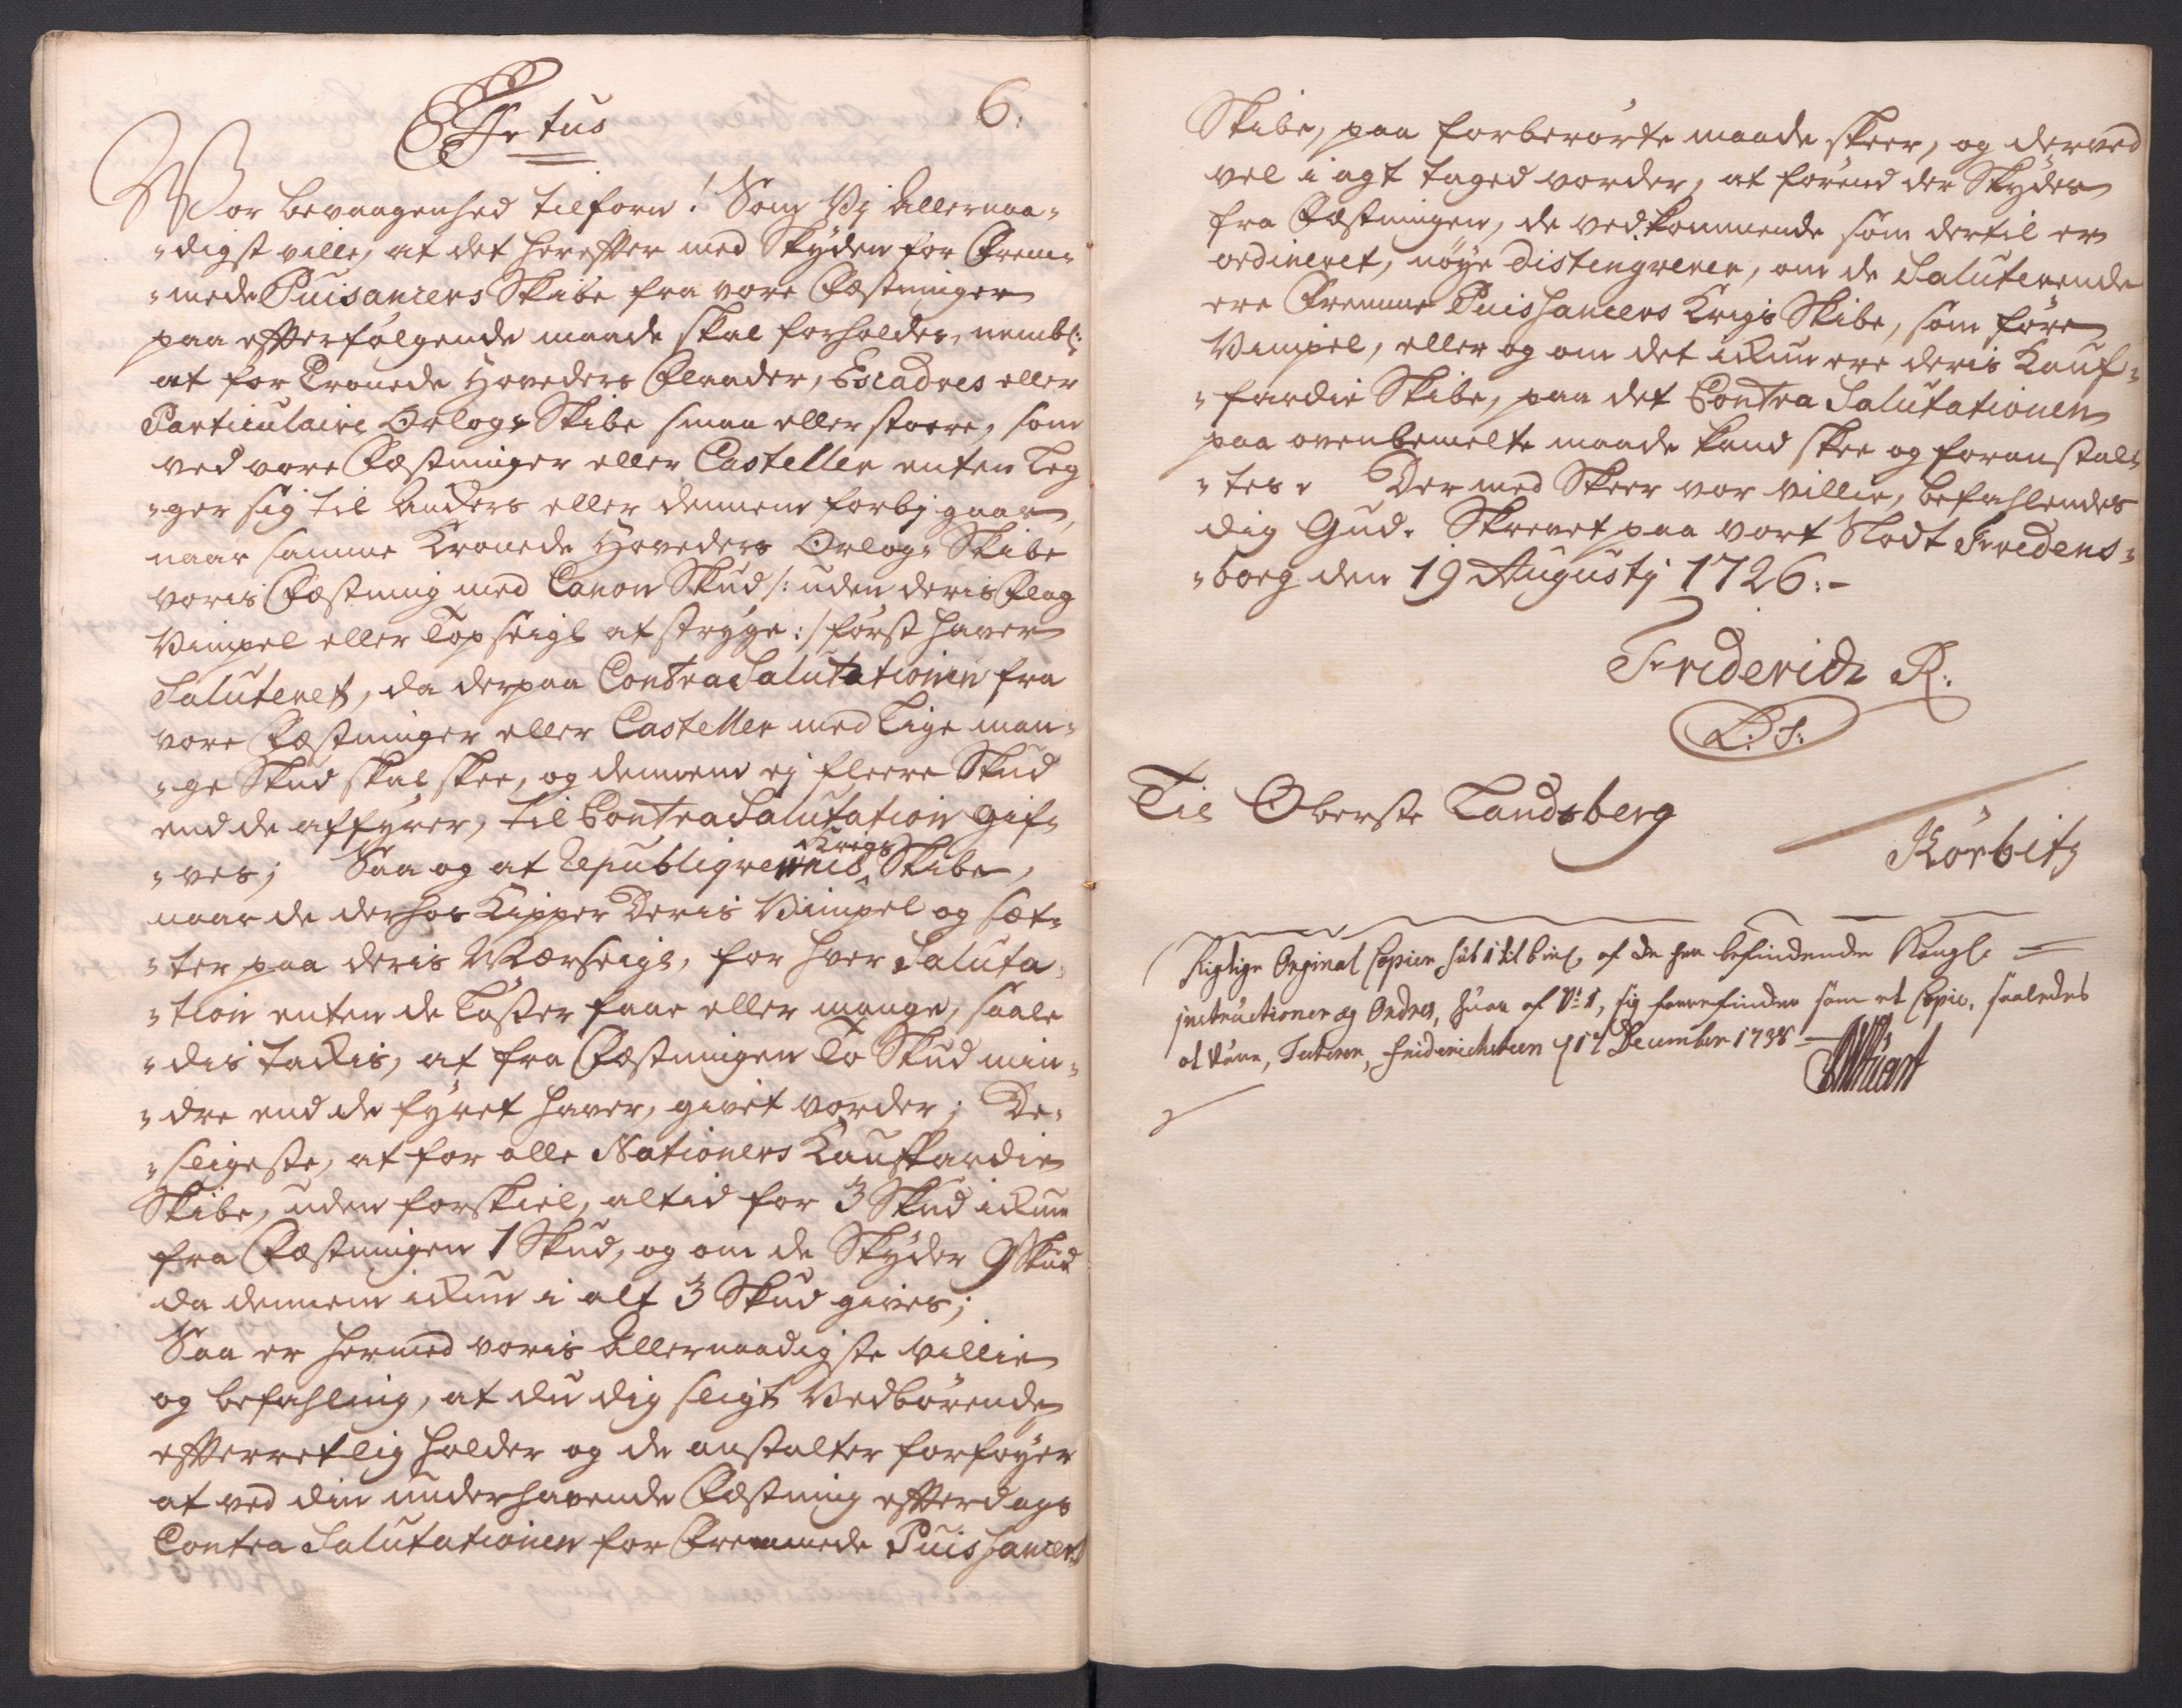 6.
Effectus
Wor bevaagenhed tilforn! Som Vj Allernaa-
-digst ville, at det herefter med Skyden for Frem-
-mede Puisancers Skibe fra vore Fæstninger
paa efterfølgende maade skal forholdes, nembl:
at for Cronede Hoveders Flaader, Escadres eller
Particulaire Orlog-Skibe smaa eller stoere, som
ved vore Fæstninger eller Casteller enten leg
-ger sig til Anckers eller dennem forbj gaar,
naar samme Kronede Hoveders Orlog-Skibe
voris Fæstning med Canon Skud /: uden deris Flag
Vimpel eller Topseigl at stryge :/ først haver
Saluteret, da derpaa Contra Salutationen fra
vore Fæstninger eller Casteller med lige man-
-ge Skud skal skee, og dennem ej fleere Skud
end de affyrer, til Contra Salutation gif-
-ves; Saa og at Republiqvernis Krigs Skibe,
naar de derhos Kipper Deris Vimpel og sæt-
-ter paa deris Mærseigl, for hver Saluta-
-tion enten de Løsser faae eller mange, saale
-dis tackis, at fra Fæstningen To Skud min-
-dre end de fyret haver, givet vorder; De-
-sligeste, at for alle Nationers Kauffardie
Skibe, uden forskiel, altid for 3 Skud ickun
fra Fæstningen 1 Skud, og om de Skyder 9 Skud
da dennem ickun i alt 3 Skud gives;
Saa er hermed voris allernaadigste villie
og befahling, at du dig sligt Vedbørende
efterretlig holder og de anstalter forføyer
at ved din underhavende Fæstning efterdags
Contra Salutationen for Fremmede Puishancers
Skibe, paa forberørte maade skeer, og derved
vel i agt taged vorder, at førend der Skydes
fra Fæstningen, de vedkommende som dertil er
ordineret, nøye distingverer, om de Saluterende
ere Fremme Puishancers Krigs Skibe, som føre
Vimpel, eller og om det ickun ere deris Kauf-
-fardie Skibe, paa det Contra Salutationen
paa ovenbemelte maade kand skee og foranstal-
-tes. Der med Skeer vor villie, befahlendes
dig Gud. Skrevet paa vort Slodt Fredens-
-borg den 19 Augustj 1726:-
Friderich R.
L:S:
Til Oberste Landsberg
Körbitz
Rigtige Orginal Copier sub 1 til 6 incl, af de her befindende Kongl.
instructioner og Ordres, hvor af No 1, sig forrefinder som et Copie, saaledes
at være, Testerer, Friderichsteen d 17 December 1738